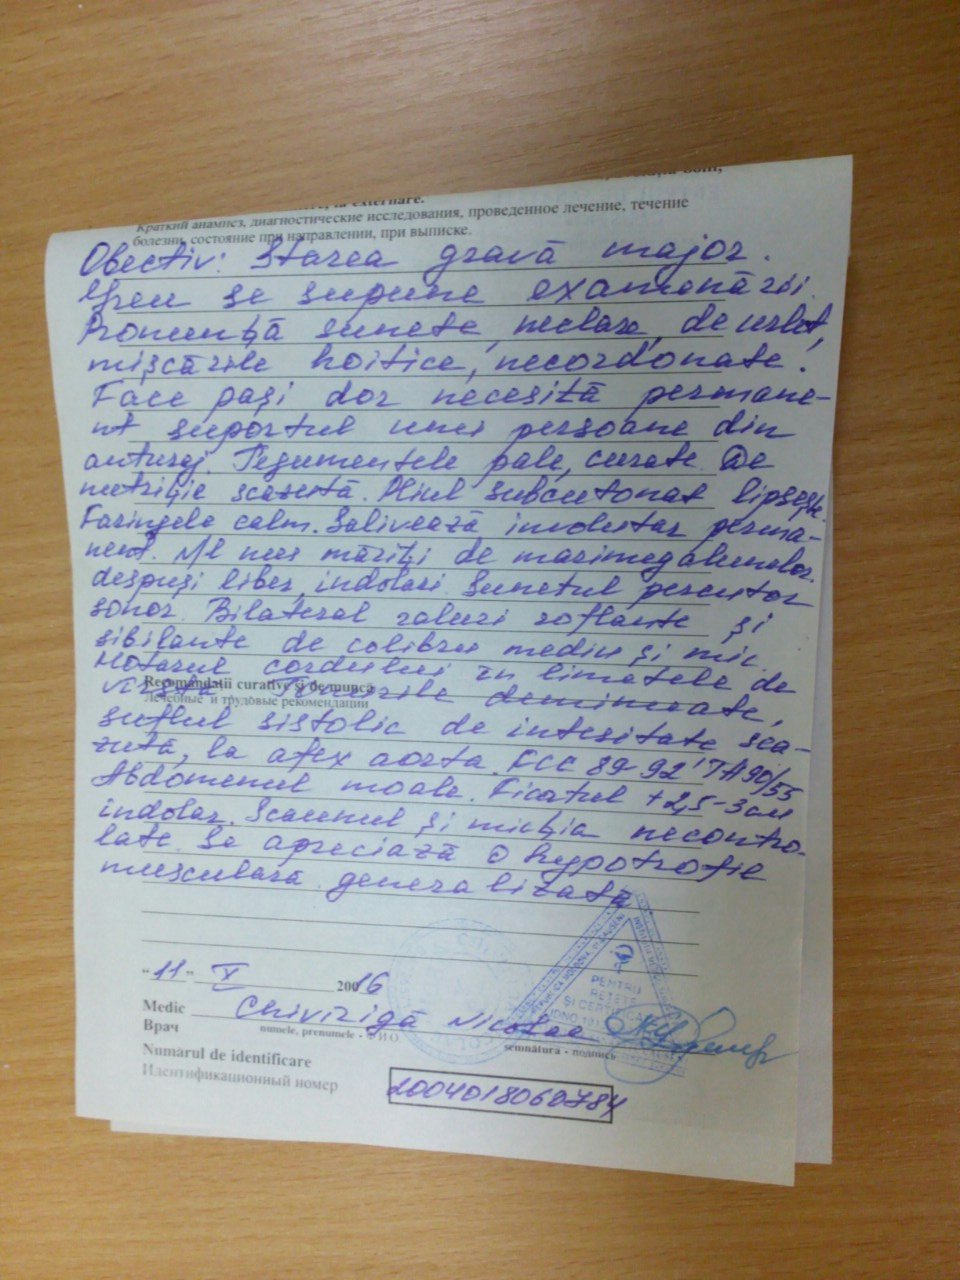 la externare.
Краткий анамнез, диагностические исследования, проведенное лечение, течение
болезни, состояние при направлении, при выписке.
Obectiv: Starea gravă major.
Greu se supune examenării.
Pronunță sunete, neclare, de urlet,
mișcările hoitice, necordonate.
Face pași dor necesită permane-
nt suportul unei persoane din
anturaj. Tegumentele pale, curate. De
nutriție scazută. Pliul subcutonat lipsește.
Faringele calm. Salivează involuntar perma-
nent. N/l nus măriți de marimeg alunelor.
despuși liber, indolari. Sunetul percutor
sonor. Bilateral raluri roflante și
sibilante de colibru mediu și mic.
Hotarul cordului în limetele de
Recomandații curative și de muncă
Лечебные и трудовые рекомендации
vîrsta Tonurile deminuate,
suflul sistolic de intesitate sca-
zută, la apex aorta. FCC 89-92' TA 90/55
Abdomenul moale. Ficatul +2,5-3cm
indolor. Scaunul și micția necontro-
late. Se apreciază o hypotrofie
musculară generalizată
"11" V 2016
Medic Chivirigă Nicolae
Врач numele, prenumele - Ф И О
semnătura - подпись
Numărul de identificare
Идентификационный номер
2004018060784
PENTRU
REȚETE
ȘI CERTIFICATE